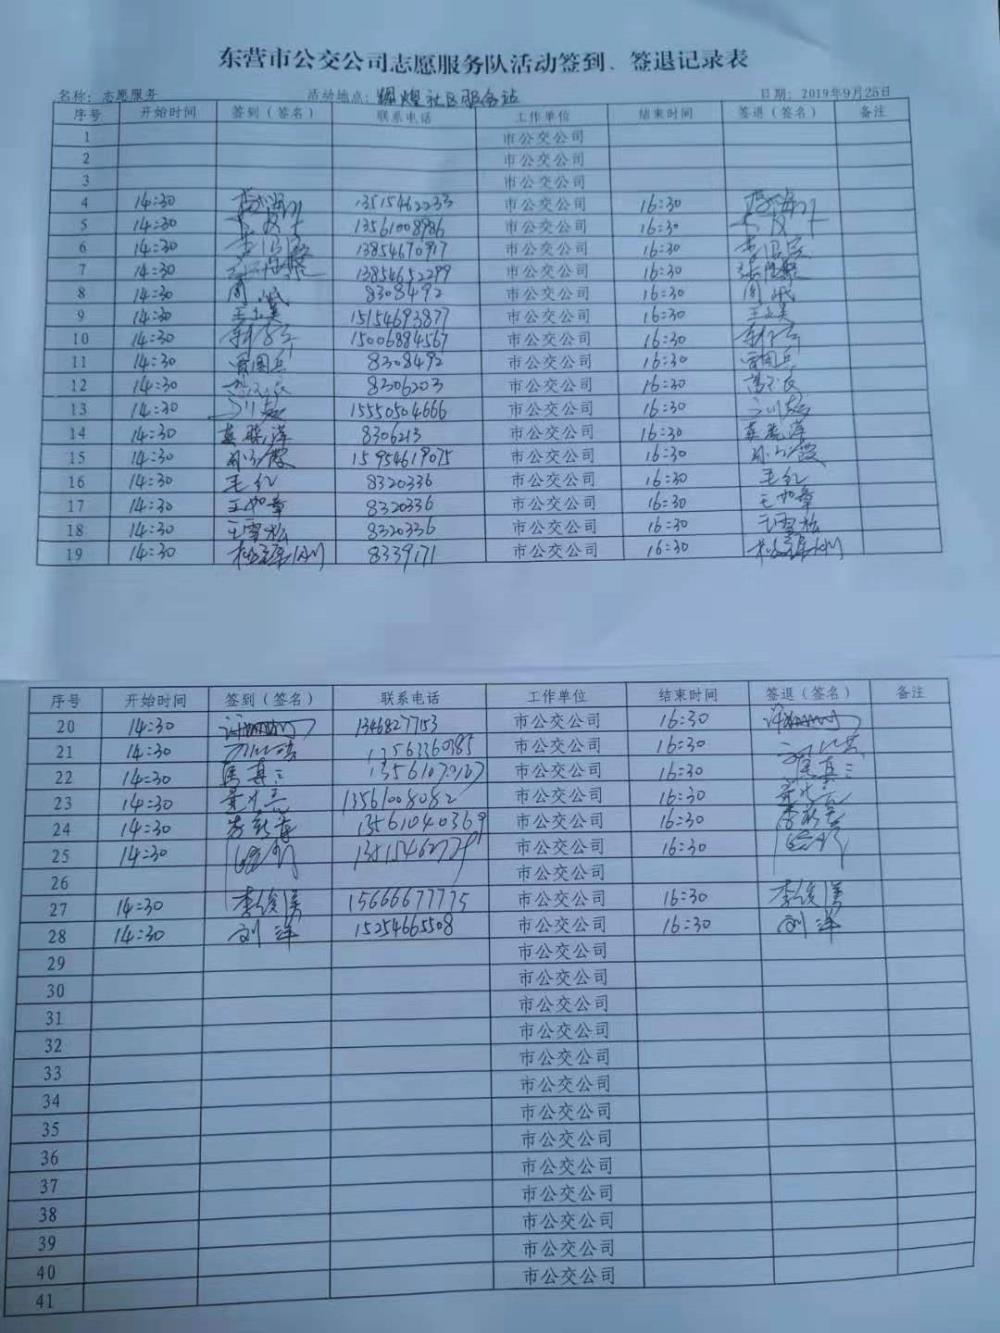 东营市公交公司志愿服务队活动签到、签退记录表
名称：志愿服务 活动地点：辉煌社区服务站 日期：2019年9月25日
序号 开始时间 签到（签名） 联系电话 工作单位 结束时间 签退（签名） 备注
1 市公交公司
2 市公交公司
3 市公交公司
4 14:30 13515462233 市公交公司 16:30
5 14:30 13561008986 市公交公司 16:30
6 14:30 13854670917 市公交公司 16:30
7 14:30 13854652299 市公交公司 16:30
8 14:30 8308492 市公交公司 16:30
9 14:30 15154693877 市公交公司 16:30
10 14:30 15006884567 市公交公司 16:30
11 14:30 曾国兵 8308492 市公交公司 16:30 曾国兵
12 14:30 8306203 市公交公司 16:30
13 14:30 15550504666 市公交公司 16:30
14 14:30 8306213 市公交公司 16:30
15 14:30 15954619075 市公交公司 16:30
16 14:30 毛红 8320336 市公交公司 16:30 毛红
17 14:30 王如章 8320336 市公交公司 16:30 王如章
18 14:30 王雪松 8320336 市公交公司 16:30 王雪松
19 14:30 8339171 市公交公司 16:30
序号 开始时间 签到（签名） 联系电话 工作单位 结束时间 签退（签名） 备注
20 14:30 1346827753 市公交公司 16:30
21 14:30 市公交公司 16:30
22 14:30 市公交公司 16:30
23 14:30 13561008082 市公交公司 16:30
24 14:30 13561040369 市公交公司 16:30
25 14:30 市公交公司 16:30
26 市公交公司
27 14:30 李俊溪 15666677775 市公交公司 16:30 李俊溪
28 14:30 刘洋 15254665508 市公交公司 16:30 刘洋
29 市公交公司
30 市公交公司
31 市公交公司
32 市公交公司
33 市公交公司
34 市公交公司
35 市公交公司
36 市公交公司
37 市公交公司
38 市公交公司
39 市公交公司
40 市公交公司
41 市公交公司